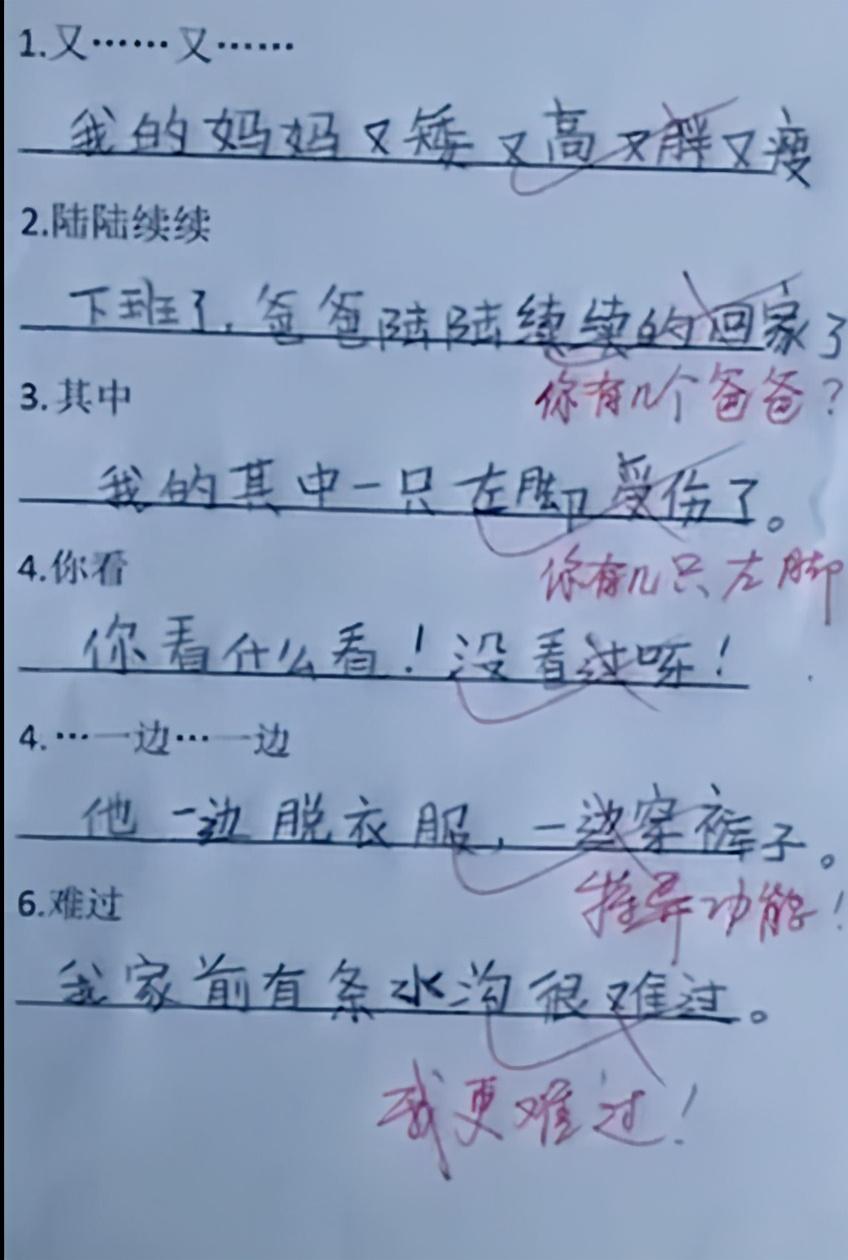 1.又……又……
我的妈妈又矮又高又胖又瘦
2.陆陆续续
下班了,爸爸陆陆续续的回家了
你有几个爸爸?
3.其中
我的其中一只左脚受伤了。
你有几只左脚
4.你看
你看什么看!没看过啊!
4.…一边…一边
他一边脱衣服,一边穿裤子。
特异功能!
6.难过
我家前有条水沟很难过。
我更难过!